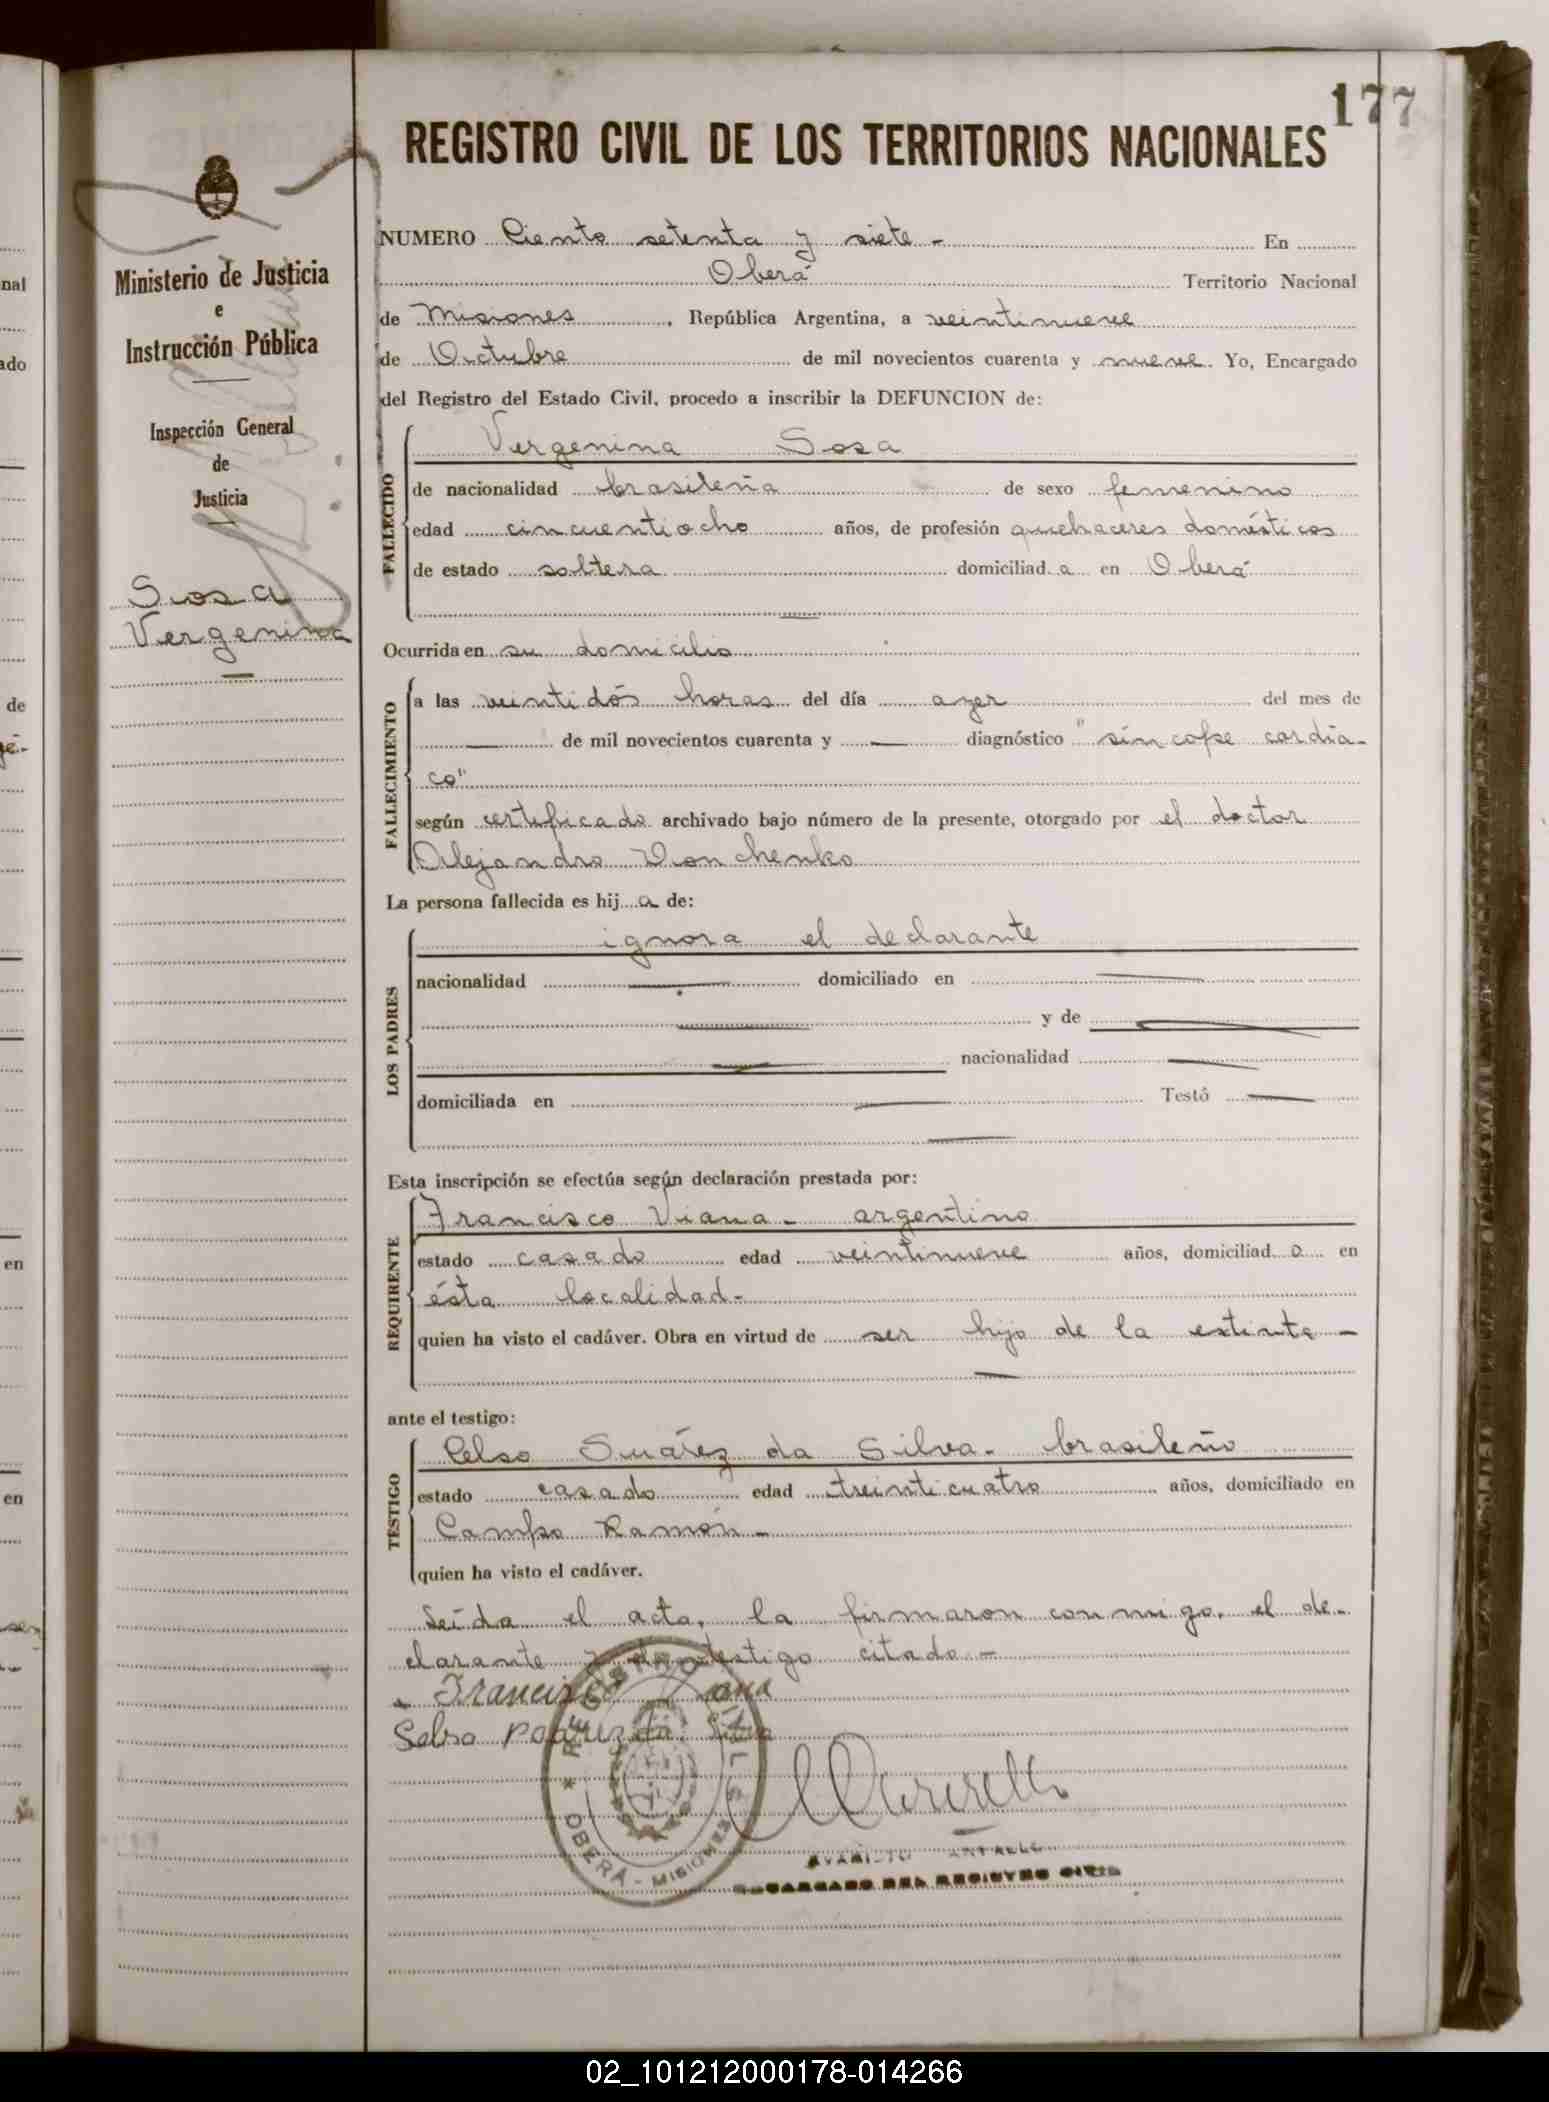 177
REGISTRO CIVIL DE LOS TERRITORIOS NACIONALES
Ministerio de Justicia
e
Instrucción Pública
Inspección General
de
Justicia
Sosa
Vergenina
NUMERO Ciento setenta y siete - En
Oberá Territorio Nacional
de Misiones, República Argentina, a veintinueve
de Octubre de mil novecientos cuarenta y nueve. Yo, Encargado
del Registro del Estado Civil, procedo a inscribir la DEFUNCION de:
FALLECIDO
Vergenina Sosa
de nacionalidad brasileña de sexo femenino
edad cincuentiocho años, de profesión quehaceres domésticos
de estado soltera domiciliad a en Oberá
Ocurrida en su domicilio
FALLECIMIENTO
a las veintidós horas del día ayer del mes de
— de mil novecientos cuarenta y — diagnóstico "síncope cardía-
co"
según certificado archivado bajo número de la presente, otorgado por el doctor
Alejandro Vonchenko
La persona fallecida es hij a de:
LOS PADRES
ignora el declarante
nacionalidad — domiciliado en —
— y de —
— nacionalidad —
domiciliada en — Testó —
Esta inscripción se efectúa según declaración prestada por:
REQUIRENTE
Francisco Viana - argentino
estado casado edad veintinueve años, domiciliad o en
ésta localidad -
quien ha visto el cadáver. Obra en virtud de ser hijo de la extinta -
ante el testigo:
TESTIGO
Celso Suárez da Silva - brasileño
estado casado edad treinticuatro años, domiciliado en
Campo Ramón -
quien ha visto el cadáver.
Leída el acta, la firmaron conmigo, el de-
clarante y el testigo citado. -
Francisco Viana
Selso da Silva
REGISTRO CIVIL
OBERÁ - MISIONES
ENCARGADO DEL REGISTRO CIVIL
02_101212000178-014266